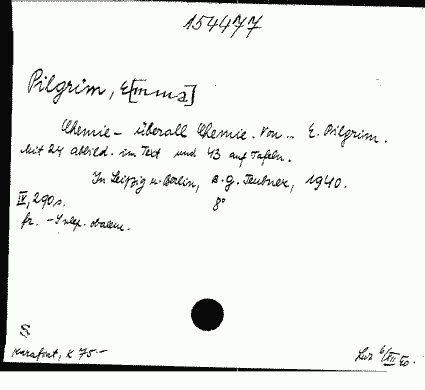 154477
Pilgrim, E[mma]
Chemie - überall Chemie. Von .. E. Pilgrim.
Mit 24 Abbild. im Text und 43 auf Tafeln.
In Leipzig u. Berlin, B. G. Teubner, 1940.
IV, 290 s. 8°
fr.
§
Karafiat, K 75.-